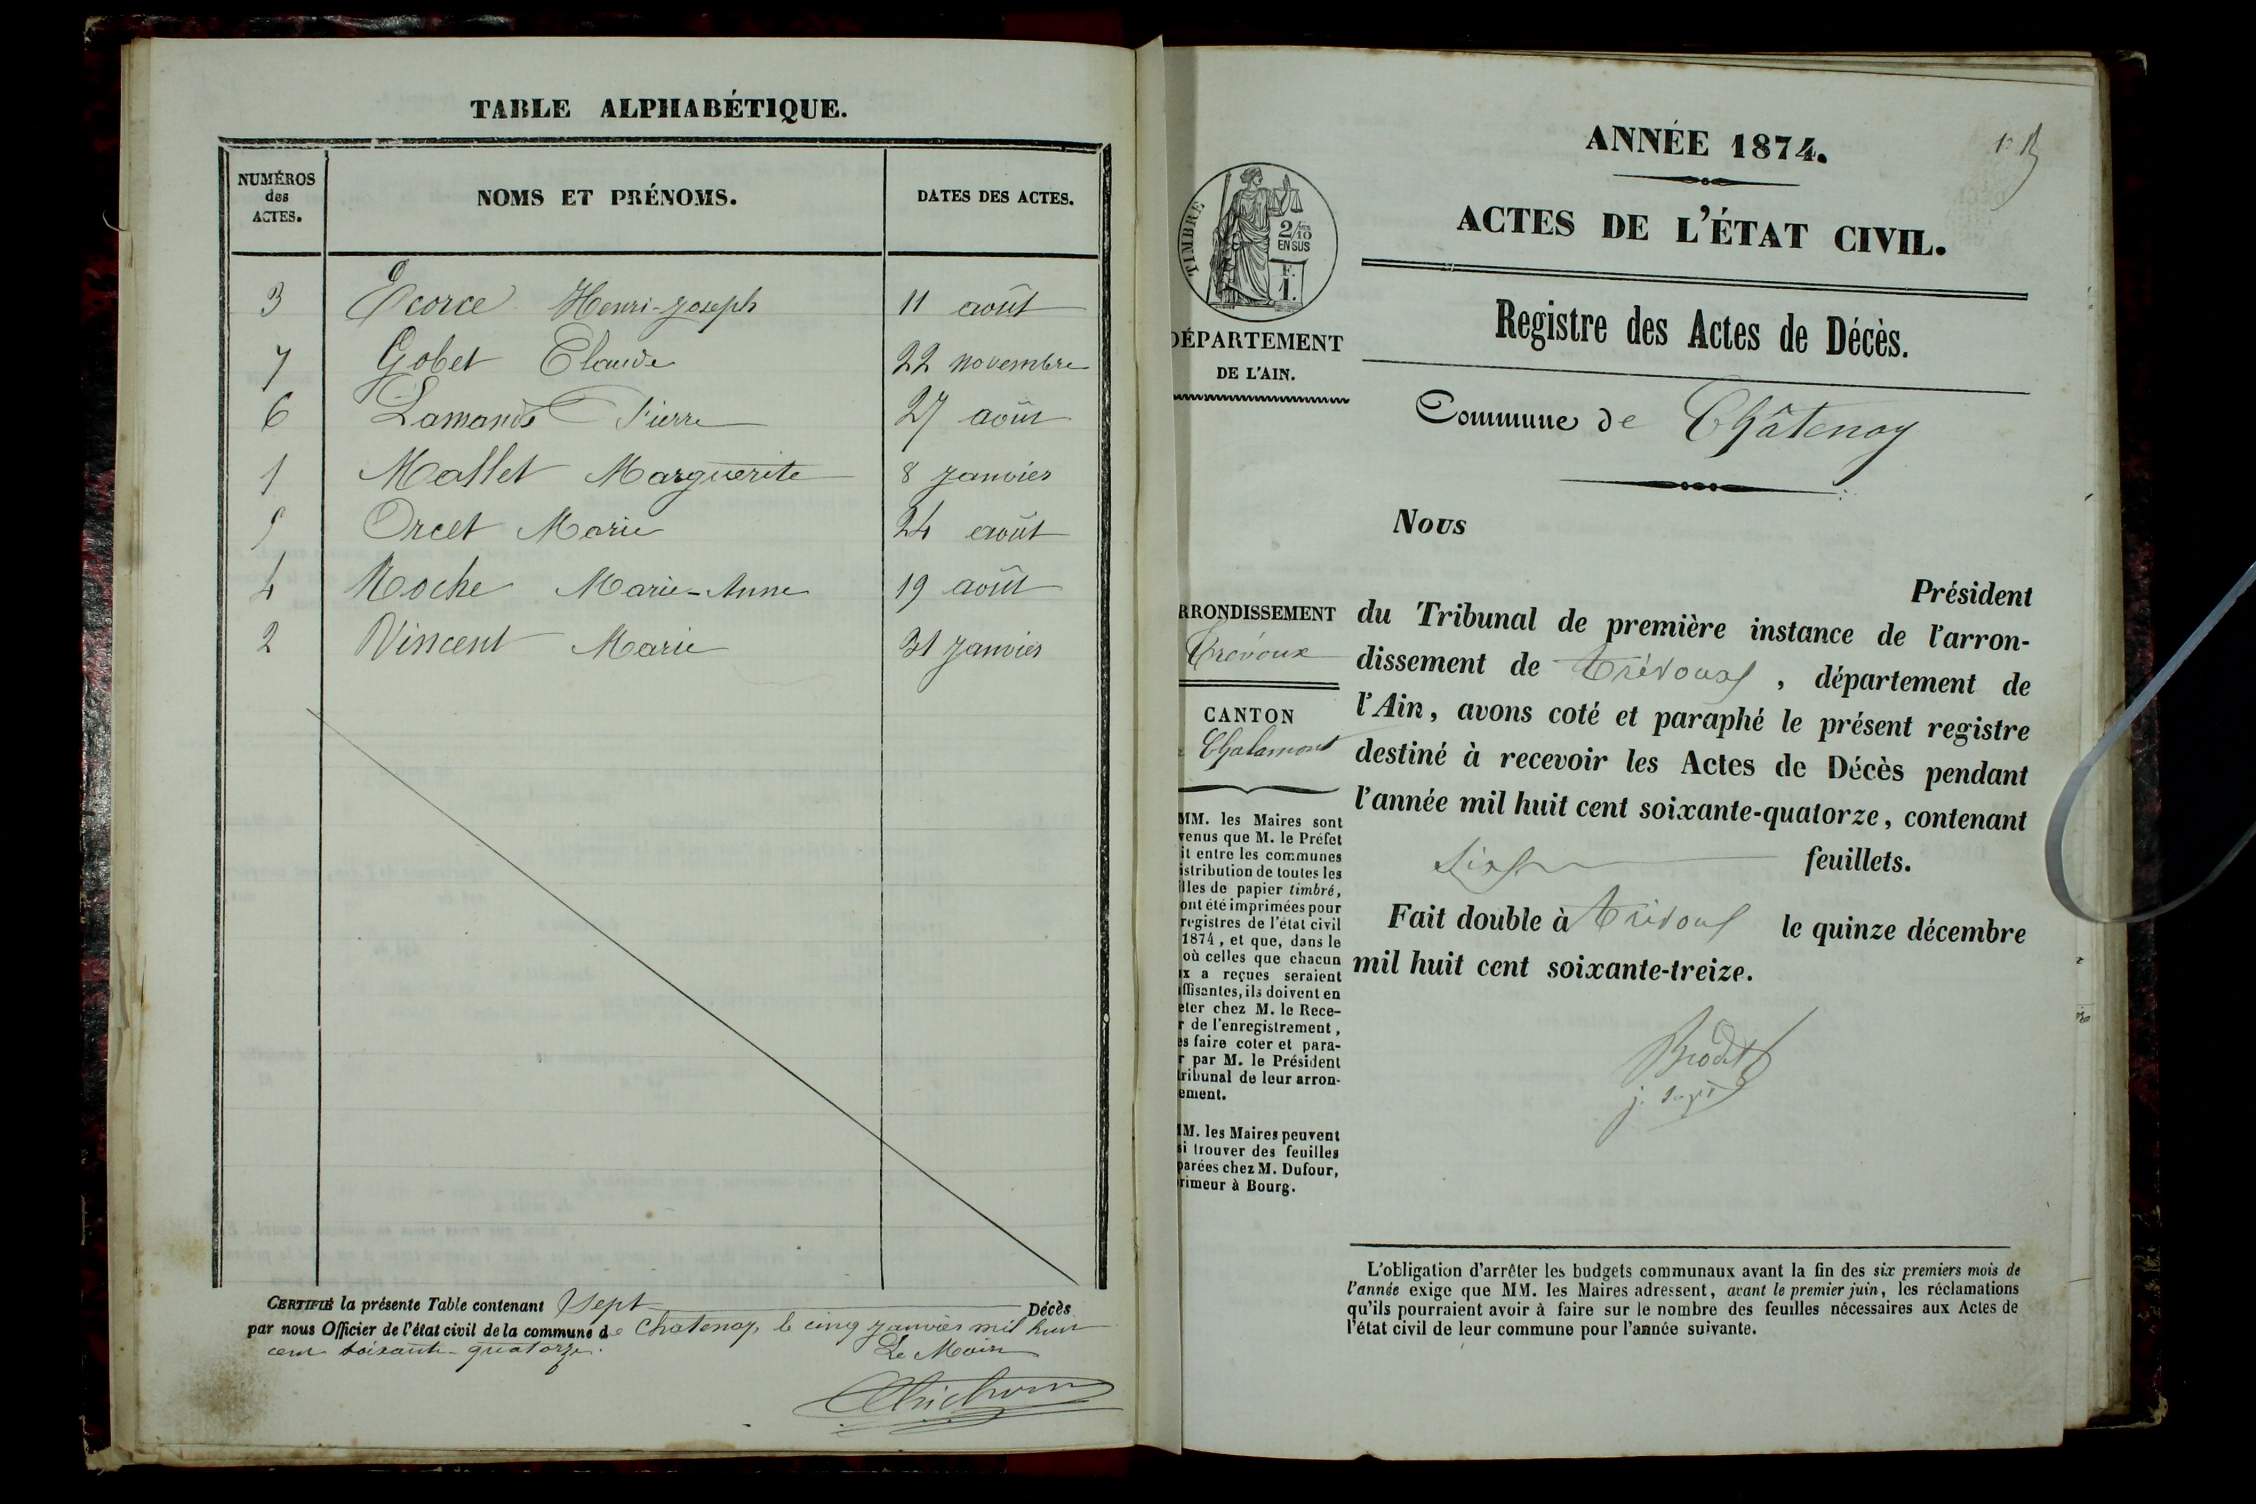 TABLE ALPHABÉTIQUE.
NUMÉROS des ACTES. NOMS ET PRÉNOMS. DATES DES ACTES.
3 Ecorce Henri-Joseph 11 août
7 Gobet Claude 22 novembre
6 Lamande Pierre 27 août
1 Mallet Marguerite 8 janvier
5 Orcet Marie 24 août
4 Roche Marie-Anne 19 août
2 Vincent Marie 31 janvier
CERTIFIÉ la présente Table contenant sept Décès
par nous Officier de l'état civil de la commune de Châtenay, le cinq janvier mil huit
cent soixante-quatorze.
Le Maire
ANNÉE 1874.
ACTES DE L'ÉTAT CIVIL.
TIMBRE
2/10
EN SUS
F.
1.
Registre des Actes de Décès.
DÉPARTEMENT
DE L'AIN.
Commune de Châtenay
Nous
Président
du Tribunal de première instance de l'arron-
dissement de Trévoux, département de
l'Ain, avons coté et paraphé le présent registre
destiné à recevoir les Actes de Décès pendant
l'année mil huit cent soixante-quatorze, contenant
Six feuillets.
Fait double à Trévoux le quinze décembre
mil huit cent soixante-treize.
RRONDISSEMENT
Trévoux
CANTON
Chalamont
MM. les Maires sont
venus que M. le Préfet
it entre les communes
istribution de toutes les
lles de papier timbré,
ont été imprimées pour
registres de l'état civil
1874, et que, dans le
où celles que chacun
x a reçues seraient
ffisantes, ils doivent en
eter chez M. le Rece-
r de l'enregistrement,
es faire coter et para-
r par M. le Président
tribunal de leur arron-
ement.
MM. les Maires peuvent
si trouver des feuilles
parées chez M. Dufour,
rimeur à Bourg.
L'obligation d'arrêter les budgets communaux avant la fin des six premiers mois de
l'année exige que MM. les Maires adressent, avant le premier juin, les réclamations
qu'ils pourraient avoir à faire sur le nombre des feuilles nécessaires aux Actes de
l'état civil de leur commune pour l'année suivante.